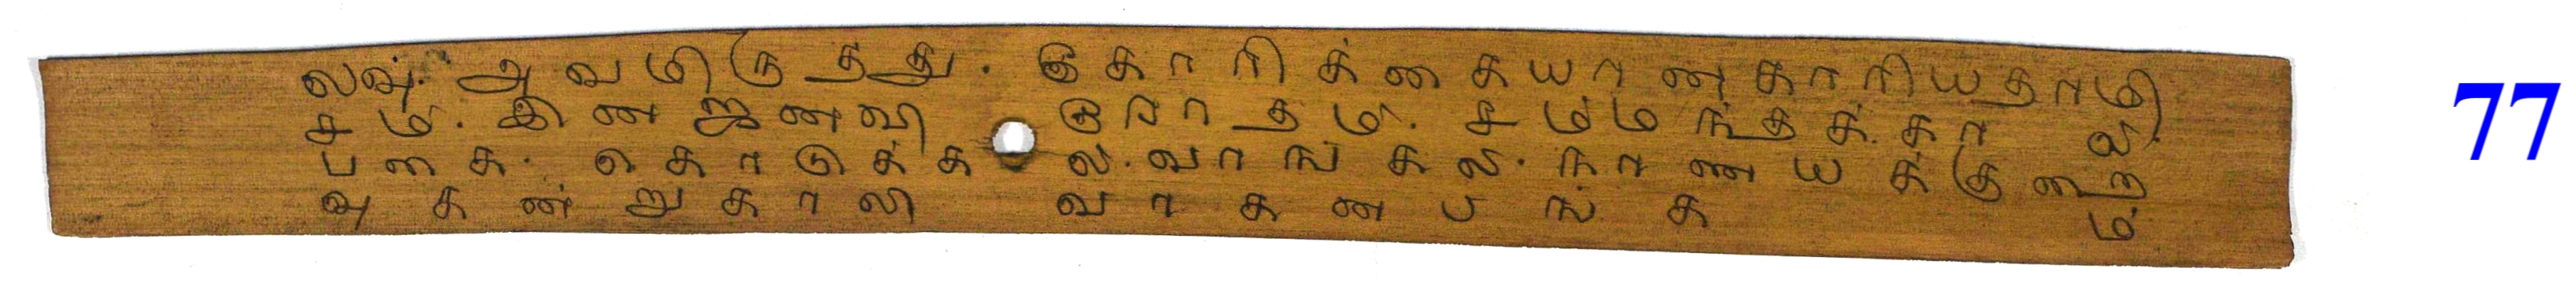 லஷ். அவமிருதது. கோரிக்கையான காரியதாமி
சம். இன ஜனவி ரோதம். சம்மந்தக். கா ல்.
பகை. கொடுக்க ல். வாங்கல். நாணயக்குறை
வு கன்று காலி வாகன பங்க ம்
77